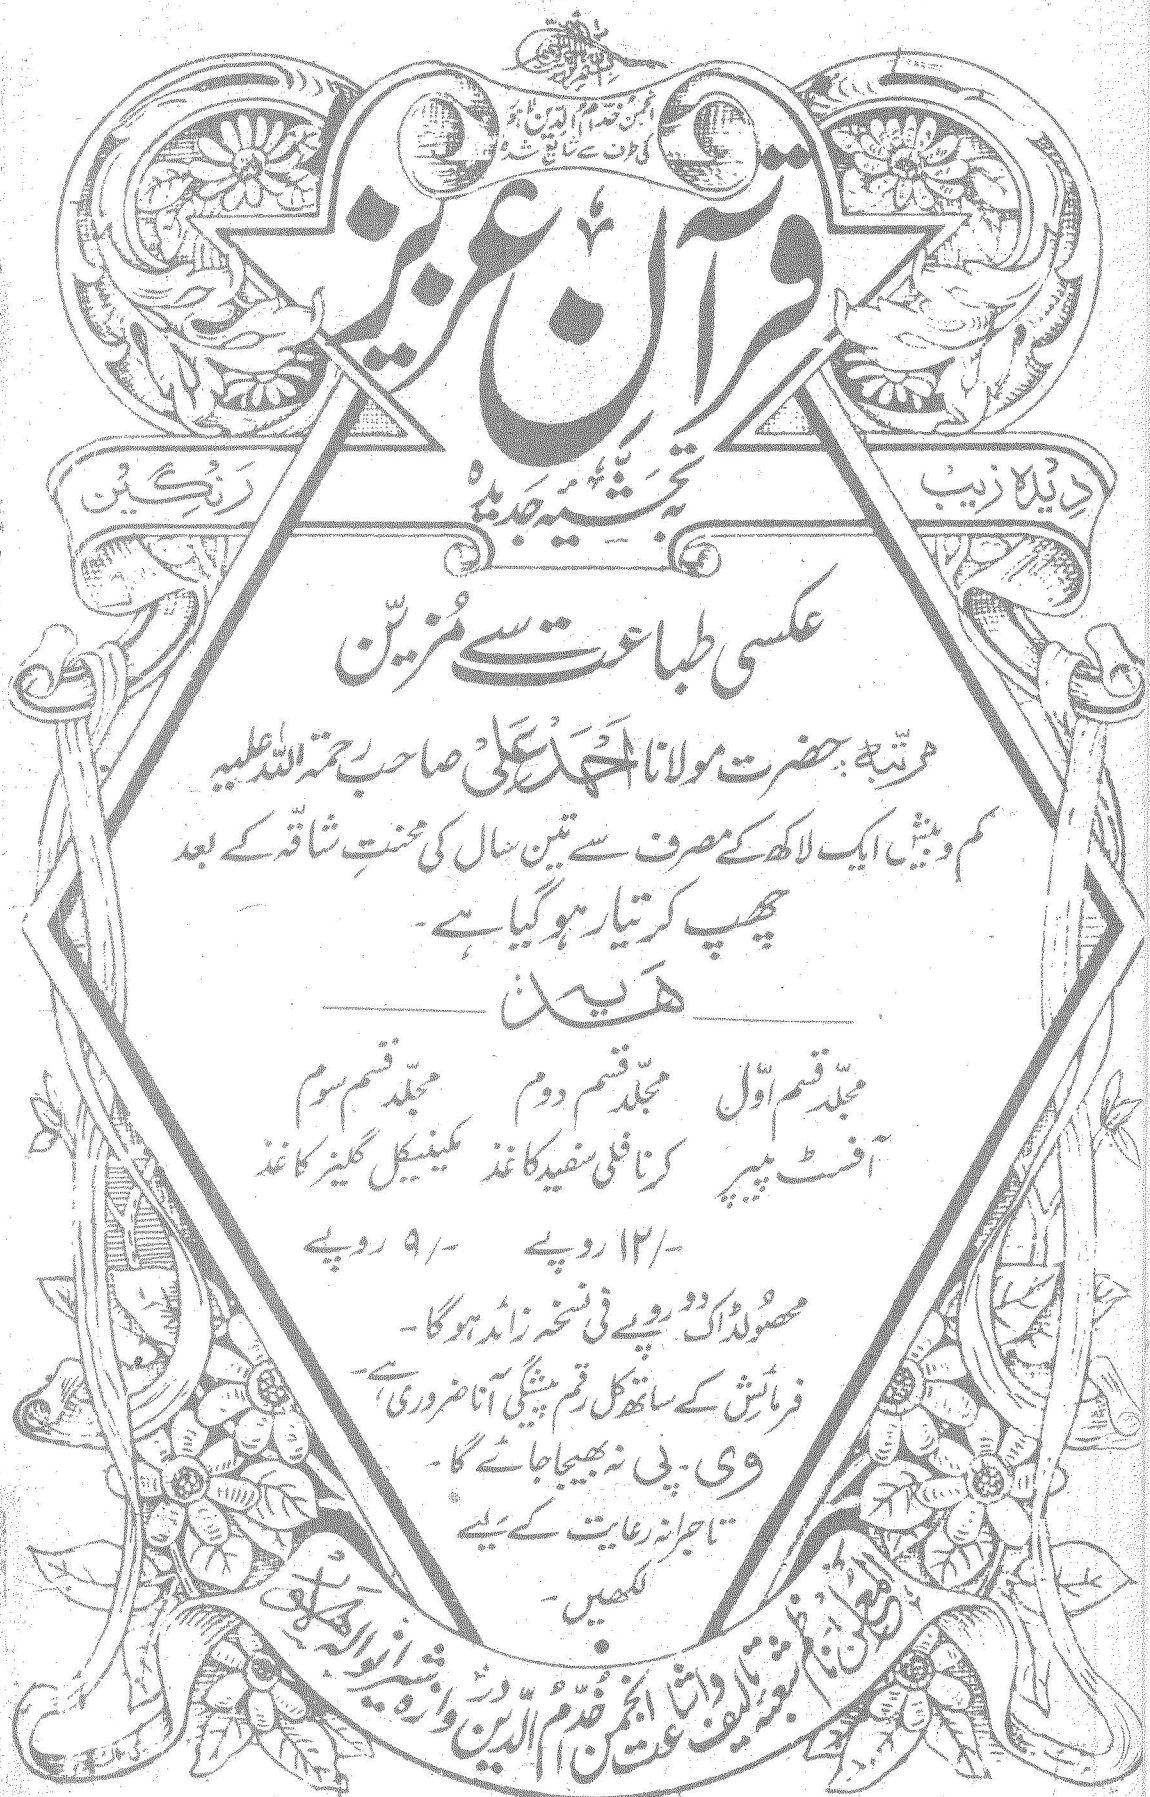 انجمن خدام الدین لاہور
کی طرف سے شائع شدہ
قرآن عزیز
دیدہ زیب
رنگین
بہ تحشیہ جدیدہ
عکسی طباعت سے مُزیّن
مرتّبہ: حضرت مولانا احمد علی صاحب رحمۃ اللہ علیہ
کم و بیش ایک لاکھ کے مصرف سے تین سال کی محنتِ شاقّہ کے بعد
چھپ کر تیار ہو گیا ہے۔
ھدیہ
مجلّد قسم اوّل مجلّد قسم دوم مجلّد قسم سوم
آفسٹ پیپر کرنا فلی سفید کاغذ مکینیکل گلیز کاغذ
۱۲/- روپے ۹/- روپے
محصولڈاک دو روپے فی نسخہ زائد ہوگا۔
فرمائش کے ساتھ کل رقم پیشگی آنا ضروری ہے۔
وی۔پی نہ بھیجا جائے گا۔
تاجرانہ رعایت کے لیے
لکھیں۔
المعلن ناظم شعبۂ تالیف و اشاعت انجمن خدّام الدّین دروازہ شیرانوالہ لاہور